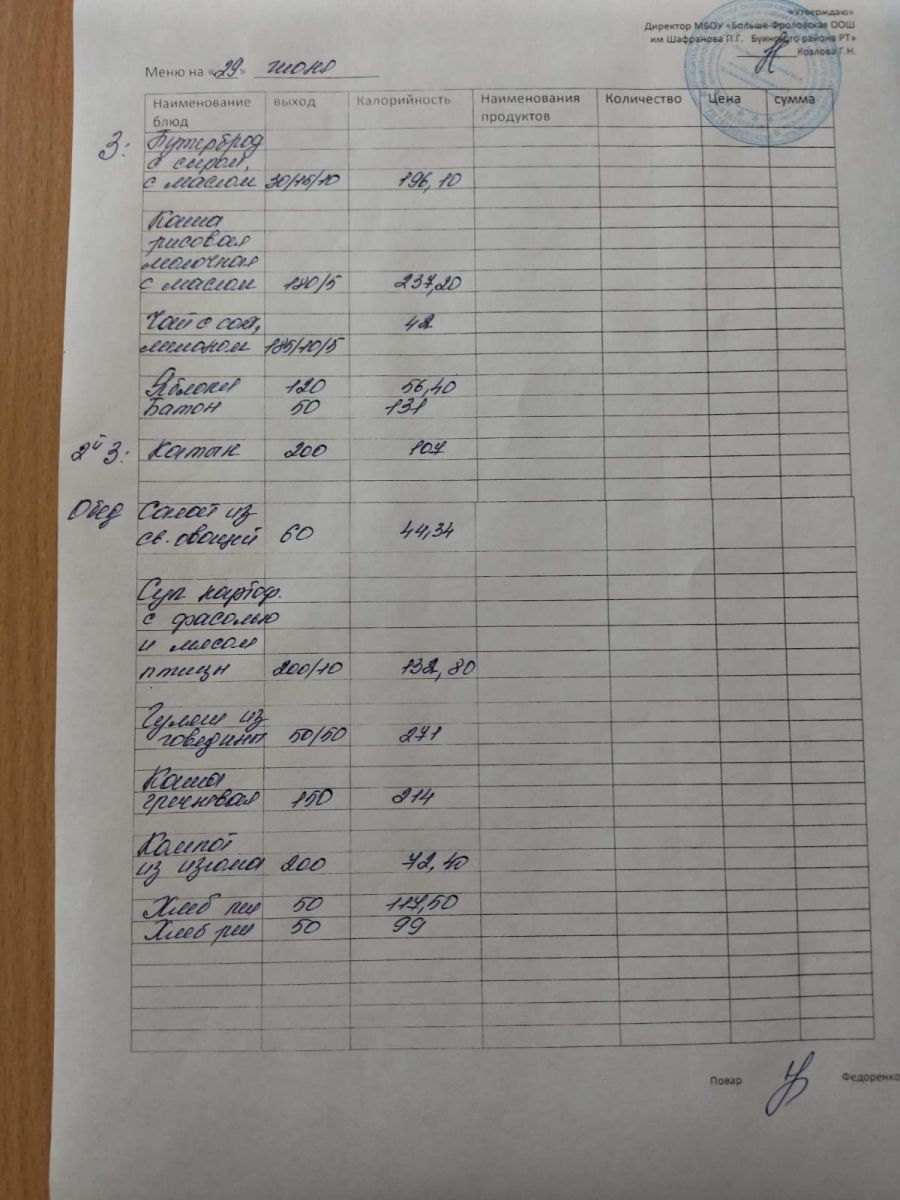 «Утверждаю»
Директор МБОУ «Больше-Фроловская ООШ
им Шафранова П.Г. Буинского района РТ»
Козлова Г.Н.
Меню на «29» июня
Наименование блюд выход Калорийность Наименования продуктов Количество Цена сумма
З: Бутерброд
с сыром,
с маслом 30/15/10 196,10
Каша
рисовая
молочная
с маслом 180/5 237,20
Чай с сах, 42
лимоном 185/10/5
Яблоки 120 56,40
Батон 50 131
2й З: Катык 200 107
Обед Салат из
св. овощей 60 44,34
Суп картоф.
с фасолью
и мясом
птицы 200/10 132,80
Гуляш из
говядины 50/50 271
Каша
гречневая 150 214
Компот
из изюма 200 72,40
Хлеб пш 50 117,50
Хлеб рж 50 99
Повар Федоренко